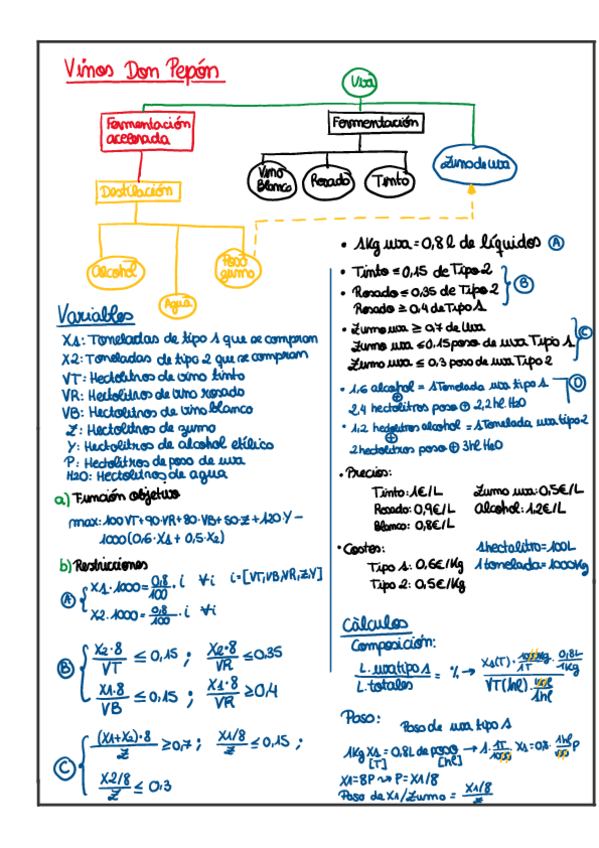 Vinos Don Pepón
Uva
Fermentación
acelerada
Fermentación
Destilación
Vino
Blanco
Rosado
Tinto
Zumo de uva
Alcohol
Agua
Poso
zumo
Variables
X1: Toneladas de tipo 1 que se compran
X2: Toneladas de tipo 2 que se compran
VT: Hectolitros de vino tinto
VR: Hectolitros de vino rosado
VB: Hectolitros de vino blanco
Z: Hectolitros de zumo
Y: Hectolitros de alcohol etílico
P: Hectolitros de poso de uva
H2O: Hectolitros de agua
a) Función objetivo
max: 100VT+90·VR+80·VB+50·Z+120·Y-
1000(0,6·X1 + 0,5·X2)
b) Restricciones
A { X1·1000 = 0,8/100 · i ∀i i=[VT,VB,VR,Z,Y]
X2·1000 = 0,8/100 · i ∀i
B { X2·8/VT ≤ 0,15 ; X2·8/VR ≤ 0,35
X1·8/VB ≤ 0,15 ; X1·8/VR ≥ 0,4
C { (X1+X2)·8/Z ≥ 0,7 ; X1/8/Z ≤ 0,15 ;
X2/8/Z ≤ 0,3
• 1Kg uva = 0,8 l de líquidos A
• Tinto ≤ 0,15 de Tipo 2
• Rosado ≤ 0,35 de Tipo 2 } B
Rosado ≥ 0,4 de Tipo 1
• Zumo uva ≥ 0,7 de Uva
Zumo uva ≤ 0,15 poso de uva Tipo 1 } C
Zumo uva ≤ 0,3 poso de uva Tipo 2
• 1,6 alcohol = 1 Tonelada uva tipo 1 D
⊕
2,4 hectolitros poso ⊕ 2,2 hl H2O
• 1,2 hectolitros alcohol = 1 Tonelada uva tipo 2
⊕
2 hectolitros poso ⊕ 3 hl H2O
• Precios:
Tinto: 1€/L Zumo uva: 0,5€/L
Rosado: 0,9€/L Alcohol: 1,2€/L
Blanco: 0,8€/L
• Costes: 1 hectolitro = 100L
Tipo 1: 0,6€/Kg 1 tonelada = 1000Kg
Tipo 2: 0,5€/Kg
Cálculos
Composición:
L. uva tipo 1/L. totales = % → X1(T) · 1000Kg/1T · 0,8L/1Kg / VT(hl) · 100l/1hl
Poso:
Poso de uva tipo 1
1Kg X1 = 0,8L de poso → 1 · 1T/1000 X1 = 0,8 · 1hl/100 P
[T] [hl]
X1 = 8P → P = X1/8
Poso de X1/Zumo = X1/8/Z